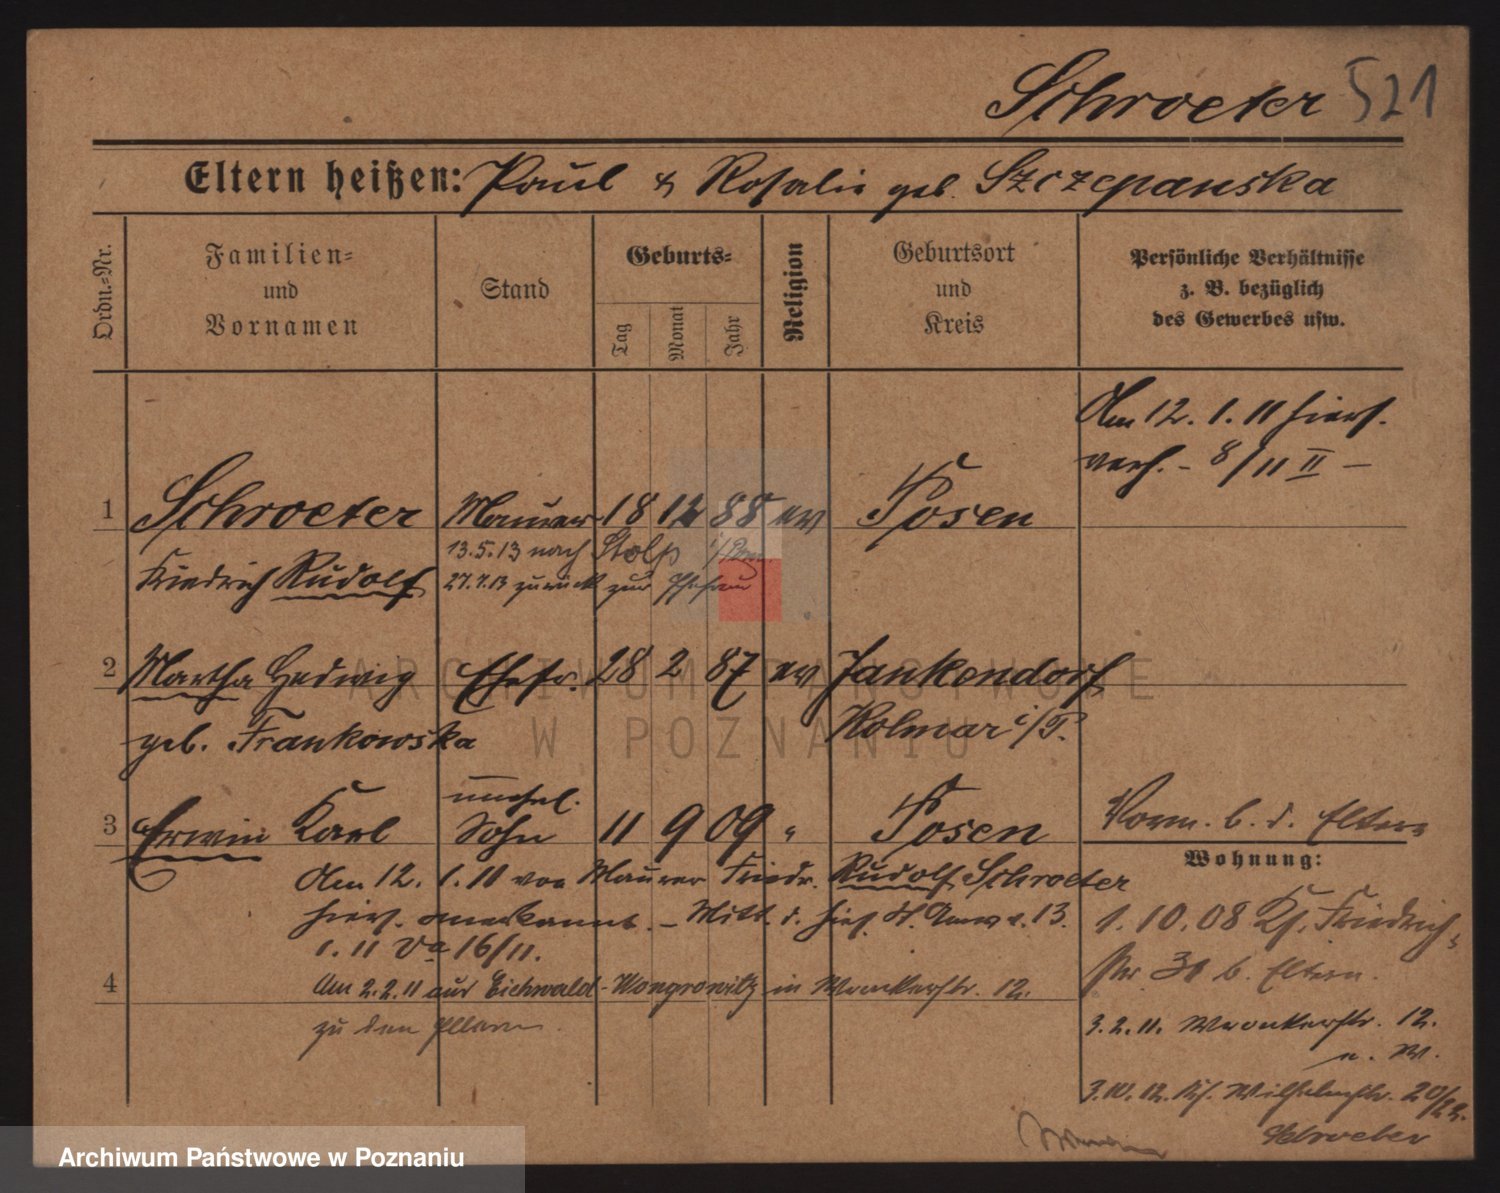 Schroeter 521
Eltern heißen: Paul & Rosalie geb. Szczepanska
Ordn.=Nr.
Familien=
und
Vornamen
Stand
Geburts=
Tag
Monat
Jahr
Religion
Geburtsort
und
Kreis
Persönliche Verhältnisse
z. B. bezüglich
des Gewerbes usw.
Am 12. 1. 11 hier
verh. - 8/11 II -
1 Schroeter Maurer 18 12 88 ev Posen
13.5.13 nach Stolp i/Pom
Friedrich Rudolf 27.7.13 zurück zur Ehefrau
2 Martha Hedwig Ehefr. 28 2 87 ev Jankendorf
geb. Frankowska Kolmar i/P.
unehel.
3 Erwin Karl Sohn 11 9 09 " Posen
Vorm. b. d. Eltern
Wohnung:
Am 12. 1. 11 von Maurer Friedr. Rudolf Schroeter
hier anerkannt. - Mitt. d. hies. St. Amts v. 13.
1. 11 16/11.
1. 10. 08 Friedrich=
str 31 b. Eltern.
4 Am 2.2.11 aus Eichwald - Wongrowitz in Wronkerstr. 12.
zu den Eltern.
3.2.11. Wronkerstr. 12.
3.10.12. Wilhelmstr. 20/22.
Schroeter
ARCHIWUM PAŃSTWOWE
W POZNANIU
Archiwum Państwowe w Poznaniu